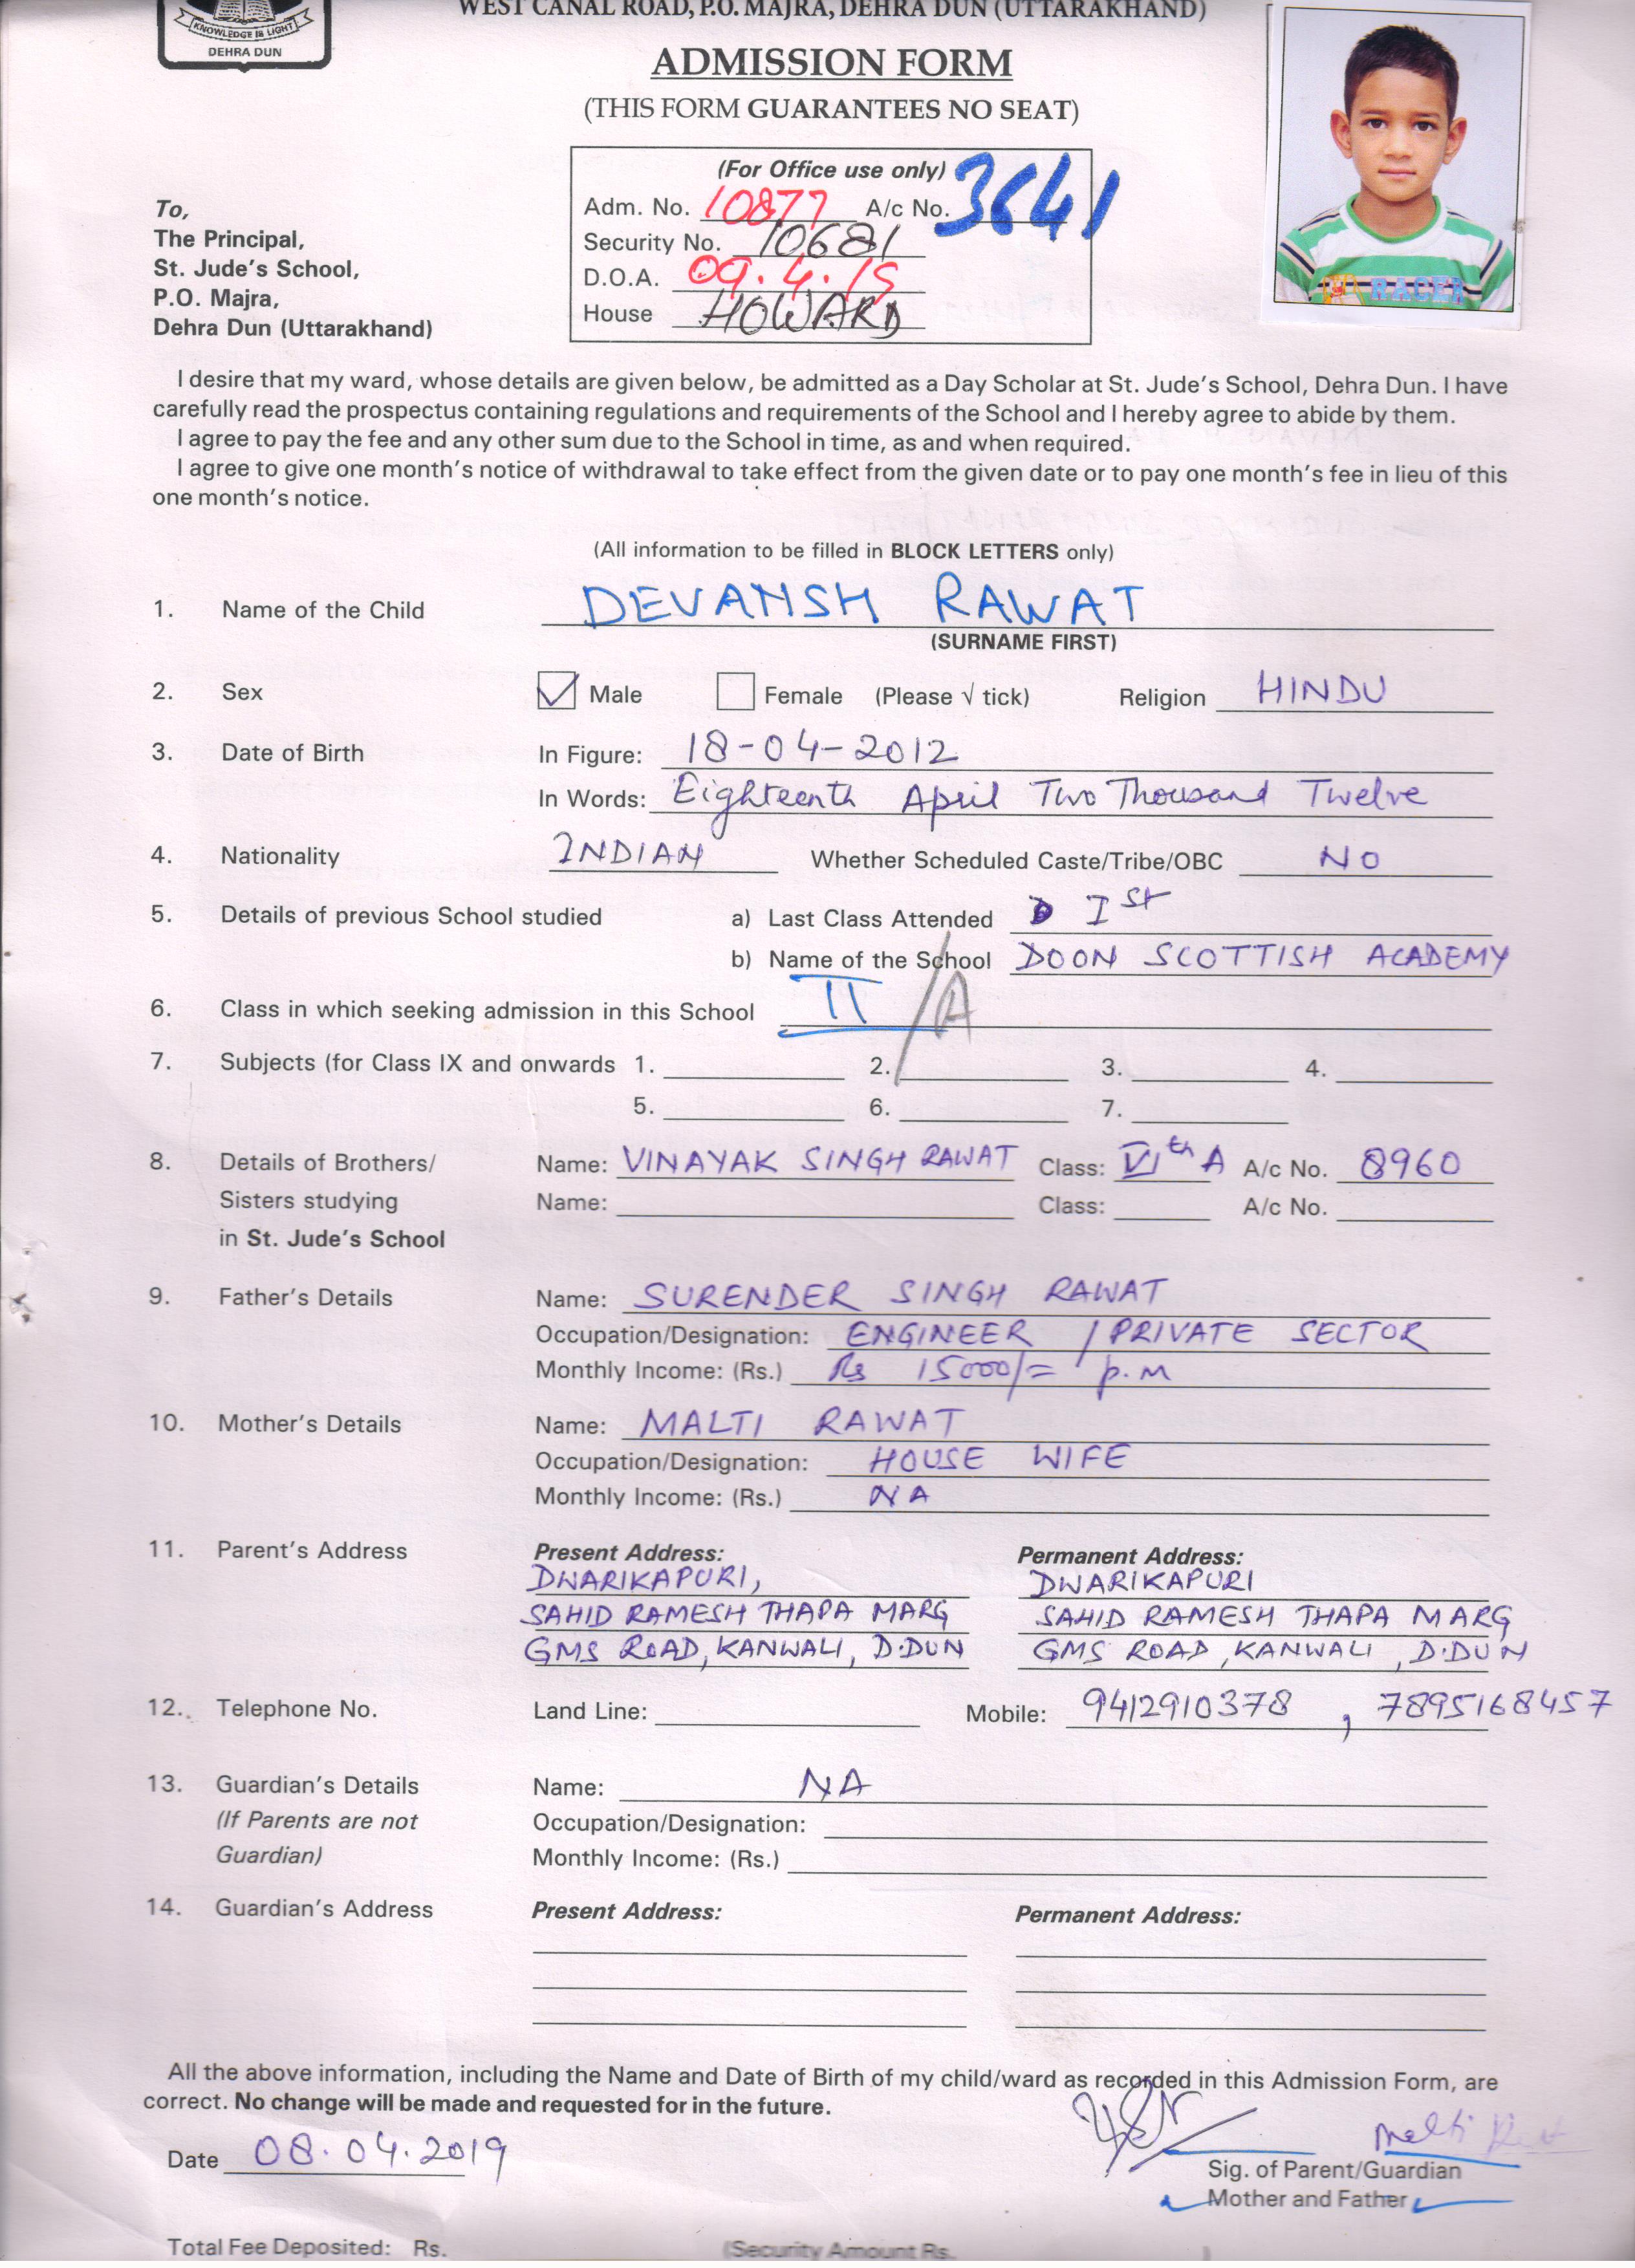 KNOWLEDGE IS LIGHT
DEHRA DUN
WEST CANAL ROAD, P.O. MAJRA, DEHRA DUN (UTTARAKHAND)
ADMISSION FORM
(THIS FORM GUARANTEES NO SEAT)
(For Office use only)
Adm. No. 10877 A/c No. 3641
Security No. 10681
D.O.A. 09.4.19
House HOWARD
To,
The Principal,
St. Jude's School,
P.O. Majra,
Dehra Dun (Uttarakhand)
RACER
I desire that my ward, whose details are given below, be admitted as a Day Scholar at St. Jude's School, Dehra Dun. I have
carefully read the prospectus containing regulations and requirements of the School and I hereby agree to abide by them.
I agree to pay the fee and any other sum due to the School in time, as and when required.
I agree to give one month's notice of withdrawal to take effect from the given date or to pay one month's fee in lieu of this
one month's notice.
(All information to be filled in BLOCK LETTERS only)
1. Name of the Child DEVANSH RAWAT
(SURNAME FIRST)
2. Sex Male Female (Please √ tick) Religion HINDU
3. Date of Birth In Figure: 18-04-2012
In Words: Eighteenth April Two Thousand Twelve
4. Nationality INDIAN Whether Scheduled Caste/Tribe/OBC NO
5. Details of previous School studied a) Last Class Attended I st
b) Name of the School DOON SCOTTISH ACADEMY
6. Class in which seeking admission in this School II /A
7. Subjects (for Class IX and onwards 1. 2. 3. 4.
5. 6. 7.
8. Details of Brothers/ Name: VINAYAK SINGH RAWAT Class: VIth A A/c No. 8960
Sisters studying Name: Class: A/c No.
in St. Jude's School
9. Father's Details Name: SURENDER SINGH RAWAT
Occupation/Designation: ENGINEER / PRIVATE SECTOR
Monthly Income: (Rs.) Rs 15000/= p.m
10. Mother's Details Name: MALTI RAWAT
Occupation/Designation: HOUSE WIFE
Monthly Income: (Rs.) NA
11. Parent's Address Present Address: Permanent Address:
DWARIKAPURI, DWARIKAPURI
SAHID RAMESH THAPA MARG SAHID RAMESH THAPA MARG
GMS ROAD, KANWALI, D.DUN GMS ROAD, KANWALI, D.DUN
12. Telephone No. Land Line: Mobile: 9412910378, 7895168457
13. Guardian's Details Name: NA
(If Parents are not Occupation/Designation:
Guardian) Monthly Income: (Rs.)
14. Guardian's Address Present Address: Permanent Address:
All the above information, including the Name and Date of Birth of my child/ward as recorded in this Admission Form, are
correct. No change will be made and requested for in the future.
Date 08.04.2019 Malti
Sig. of Parent/Guardian
Mother and Father
Total Fee Deposited: Rs. (Security Amount Rs. )